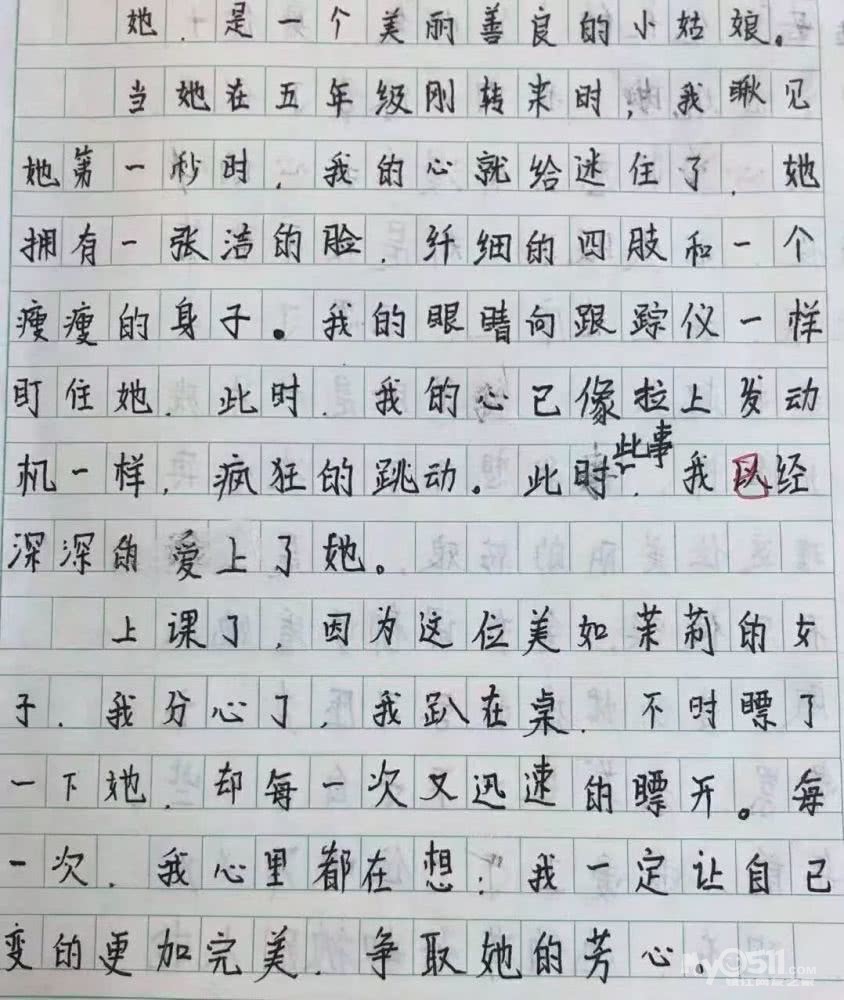 她，是一个美丽善良的小姑娘。
当她在五年级刚转来时，我瞅见
她第一秒时，我的心就给迷住了，她
拥有一张洁的脸，纤细的四肢和一个
瘦瘦的身子。我的眼睛向跟踪仪一样
盯住她，此时，我的心已像拉上发动
机一样，疯狂的跳动。此时此事，我以经
深深的爱上了她。
上课了，因为这位美如茉莉的女
子，我分心了，我趴在桌，不时瞟了
一下她，却每一次又迅速的瞟开。每
一次，我心里都在想：我一定让自己
变的更加完美，争取她的芳心。